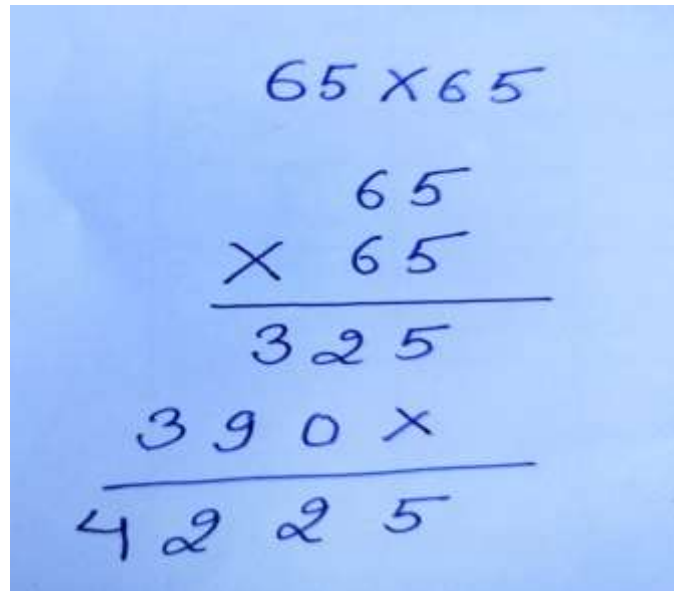 65 × 65
65
× 65
325
390 ×
4225